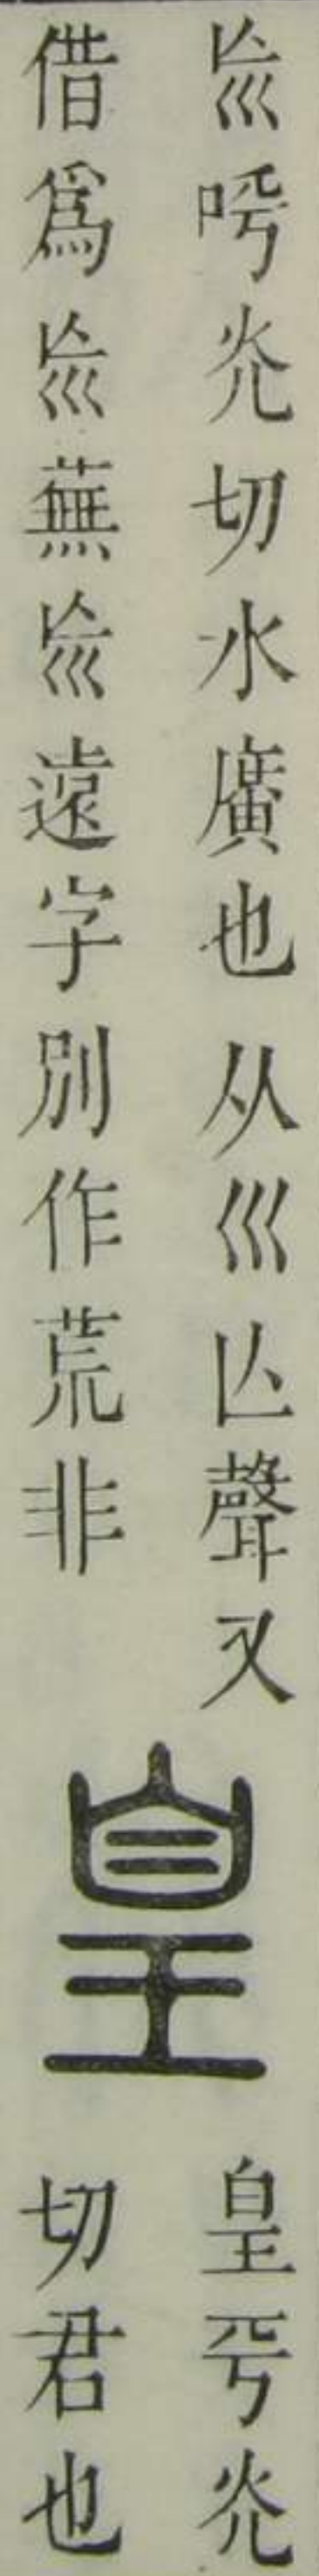 巟呼灮切水廣也从巛亾聲又
借爲巟蕪巟遠字別作荒非
皇
皇乎灮
切君也